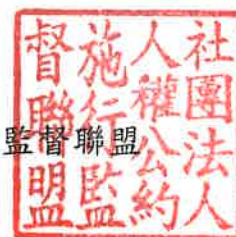 社團法人
人權公約
施行監
督聯盟
監督聯盟